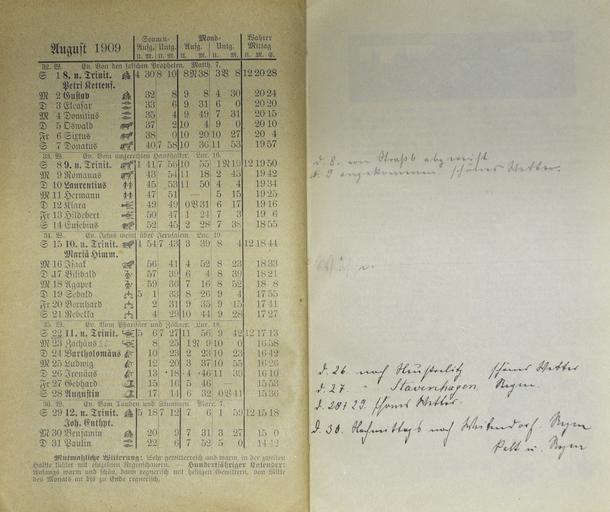 August 1909
Sonnen- Mond- Wahrer
Aufg. Untg. Aufg. Untg. Mittag
u. M. u. M. u. M. u. M. u. M. S.
32. W. Ev. Von den falschen Propheten. Matth. 7.
S 1 8. n. Trinit. 4 30 8 10 8 N 38 3 V 8 12 20 28
Petri Kettenf.
M 2 Gustav 32 8 9 8 4 30 20 24
D 3 Eleasar 33 6 9 31 6 0 20 20
M 4 Domitius 35 4 9 49 7 31 20 15
D 5 Oswald 37 2 10 4 9 0 20 10
Fr 6 Sixtus 38 0 10 20 10 27 20 4
S 7 Donatus 40 7 58 10 36 11 53 19 57
33. W. Ev. Vom ungerechten Haushalter. Luc. 16.
S 8 9. n. Trinit. 4 41 7 56 10 55 1 N 19 12 19 50
M 9 Romanus 43 54 11 18 2 43 19 42
D 10 Laurentius 45 53 11 50 4 4 19 34
M 11 Hermann 47 51 — 5 15 19 25
D 12 Klara 49 49 0 V 31 6 17 19 16
Fr 13 Hildebert 50 47 1 24 7 3 19 6
S 14 Eusebius 52 45 2 28 7 38 18 55
34. W. Ev. Jesus weint über Jerusalem. Luc. 19.
S 15 10. n. Trinit. 4 54 7 43 3 39 8 4 12 18 44
Mariä Himm.
M 16 Isaak 56 41 4 52 8 23 18 33
D 17 Bilibald 57 39 6 4 8 39 18 21
M 18 Agapet 59 36 7 16 8 52 18 8
D 19 Sebald 5 1 33 8 26 9 4 17 55
Fr 20 Bernhard 2 31 9 35 9 45 17 41
S 21 Rebekka 4 29 10 44 9 28 17 27
35. W. Ev. Vom Pharisäer und Zöllner. Luc. 18.
S 22 11. n. Trinit. 5 6 7 27 11 56 9 42 12 17 13
M 23 Zachäus 8 25 1 N 9 10 0 16 58
D 24 Bartholomäus 10 23 2 23 10 23 16 42
M 25 Ludwig 12 20 3 37 10 55 16 26
D 26 Irenäus 13 18 4 46 11 39 16 10
Fr 27 Gebhard 15 16 5 46 — 15 53
S 28 Augustin 17 14 6 32 0 V 41 15 36
36. W. Ev. Vom Tauben und Stummen. Marc. 7.
S 29 12. n. Trinit. 5 18 7 12 7 6 1 59 12 15 18
Joh. Enthpt.
M 30 Benjamin 20 9 7 31 3 27 15 0
D 31 Paulin 22 6 7 52 5 0 14 42
Mutmaßliche Witterung: Sehr gewitterreich und warm, in der zweiten
Hälfte kühler mit einzelnen Regenschauern. — Hundertjähriger Kalender:
Anfangs warm und schön, dann regnerisch mit heftigen Gewittern, von Mitte
des Monats an bis zu Ende regnerisch.
d. 8. von Straßb abgereist
d. 9 angekommen schönes Wetter.
d. 26 nach schönes Wetter
d. 27. " Stavenhagen Regen.
d. 28 + 29. schönes Wetter.
d. 30. Nachmittags nach Regen
Kalt u. Regen